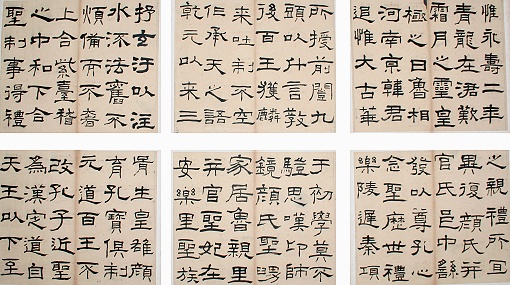 惟永壽二年
青龍在涒歎
霜月之靈皇
極之日魯相
河南京韓君
追惟大古華
所授前闓九
頭以什言教
後百王獲麟
來吐制不空
作承天之語
乾元以來三
抒玄汙以注
水流法舊不
煩備而不奢
上合紫臺稽
之中和下合
聖制事得禮
之親禮所宜
異復顏氏并
官氏邑中繇
發以尊孔心
念聖歷世禮
樂陵遲秦項
于初學莫不
驥思嘆卬師
鏡顏氏聖舅
家居魯親里
并官聖妃在
安樂里聖族
胥生皇雄顏
育孔寶俱制
元道百王不
改孔子近聖
為漢定道自
天王以下至